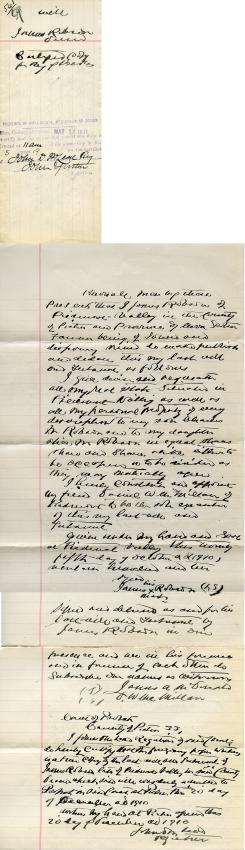 Will
James Robson
Certified Copy
for Reg of Deeds
11 am
John D.
Know all Men by these
Presents that I James Robson of
Piedmont Valley in the County
of Pictou and Province of Nova Scotia
Farmer being of sound and
disposing mind do make publish
and declare this my last will
and Testament, as follows
I give devise and bequeath
all my real Estate situated in
Piedmont Valley as well as
all my personal property of every
description to my son Charles
W Robson and to my daughter
M Robson in equal shares
share and share alike either to
be occupied or to be divided as
they may mutually agree
I hereby constitute and appoint
my friend Daniel W McMillan of
Piedmont to be the sole executor
of this my last will and
Testament
Given under my hand and Seal
at Piedmont Valley this twenty
fifth day of October A D 1910
his
James X Robson (L S)
mark
Signed and delivered as and for his
last will and Testament by
James Robson in our
presence and we in his presence
and in presence of each other do
subscribe our names as witnesses
James A McDonald
D W McMillan
Court of Probate
County of Pictou SS
I
do hereby certify that the foregoing paper writing
is a true Copy of the last will and Testament of
James Robson late of Piedmont Valley in said County
Probate in said Court at Pictou the 20 day
of December A D 1910
Witness my hand at Pictou
20 day of December A D 1910
Register